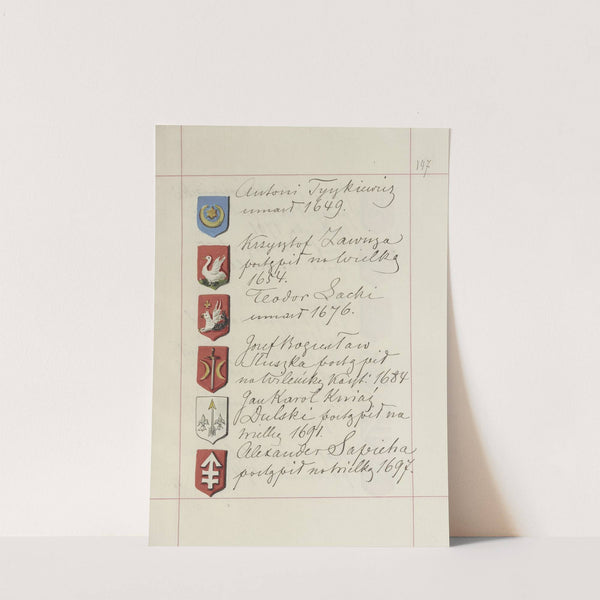 197
Antoni Tyszkiewicz
umarł 1649.
Krzysztof Zawisza
postąpił na Wielką
1654.
Teodor Lacki
umarł 1676.
Józef Bogusław
Słuszka postąpił
na Wileńską Kaszt. 1684
Jan Karol Kniaź
Dolski postąpił na
Wielką 1691.
Alexander Sapieha
postąpił na Wielką 1697.